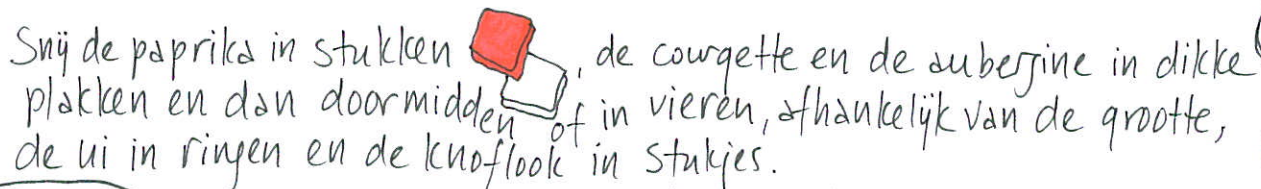 Snij de paprika in stukken, de courgette en de aubergine in dikke
plakken en dan doormidden of in vieren, afhankelijk van de grootte,
de ui in ringen en de knoflook in stukjes.